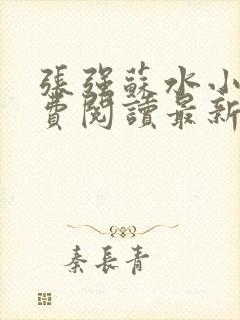 張強蘇水小
費閱讀最新
秦長青